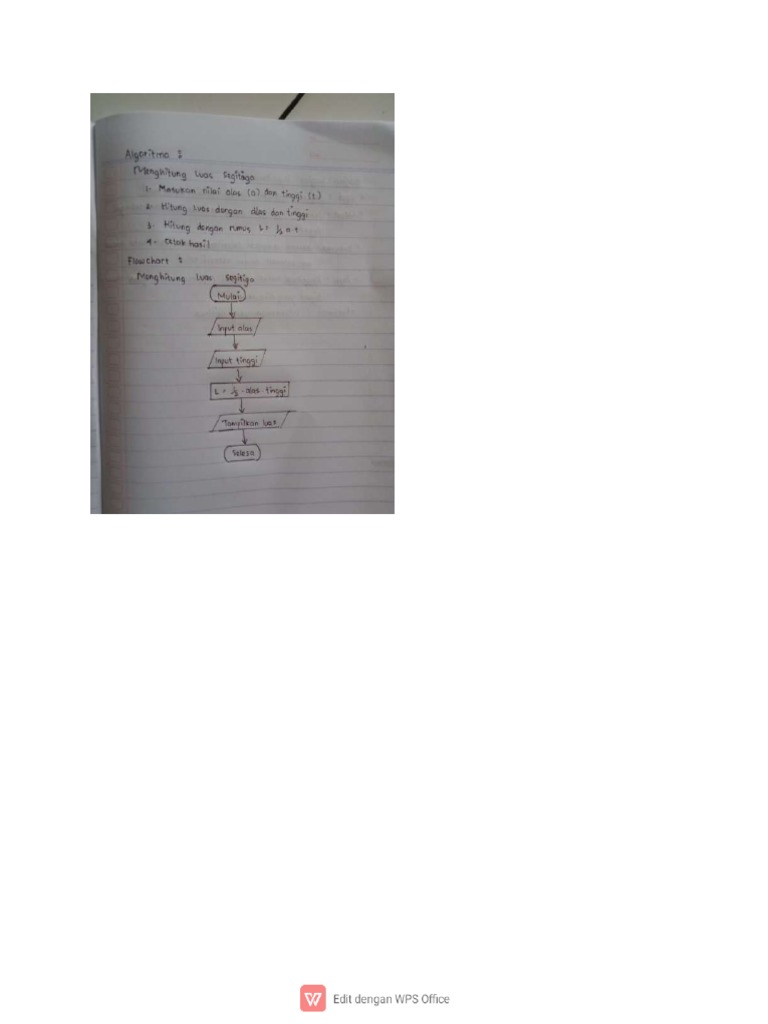 Algoritma :
Menghitung luas segitiga
1. Masukan nilai alas (a) dan tinggi (t)
2. Hitung luas dengan alas dan tinggi
3. Hitung dengan rumus L = 1/2 a t
4. Cetak hasil
Flowchart :
Menghitung luas segitiga
Mulai
Input alas
Input tinggi
L = 1/2 . alas . tinggi
Tampilkan luas
Selesai
Edit dengan WPS Office